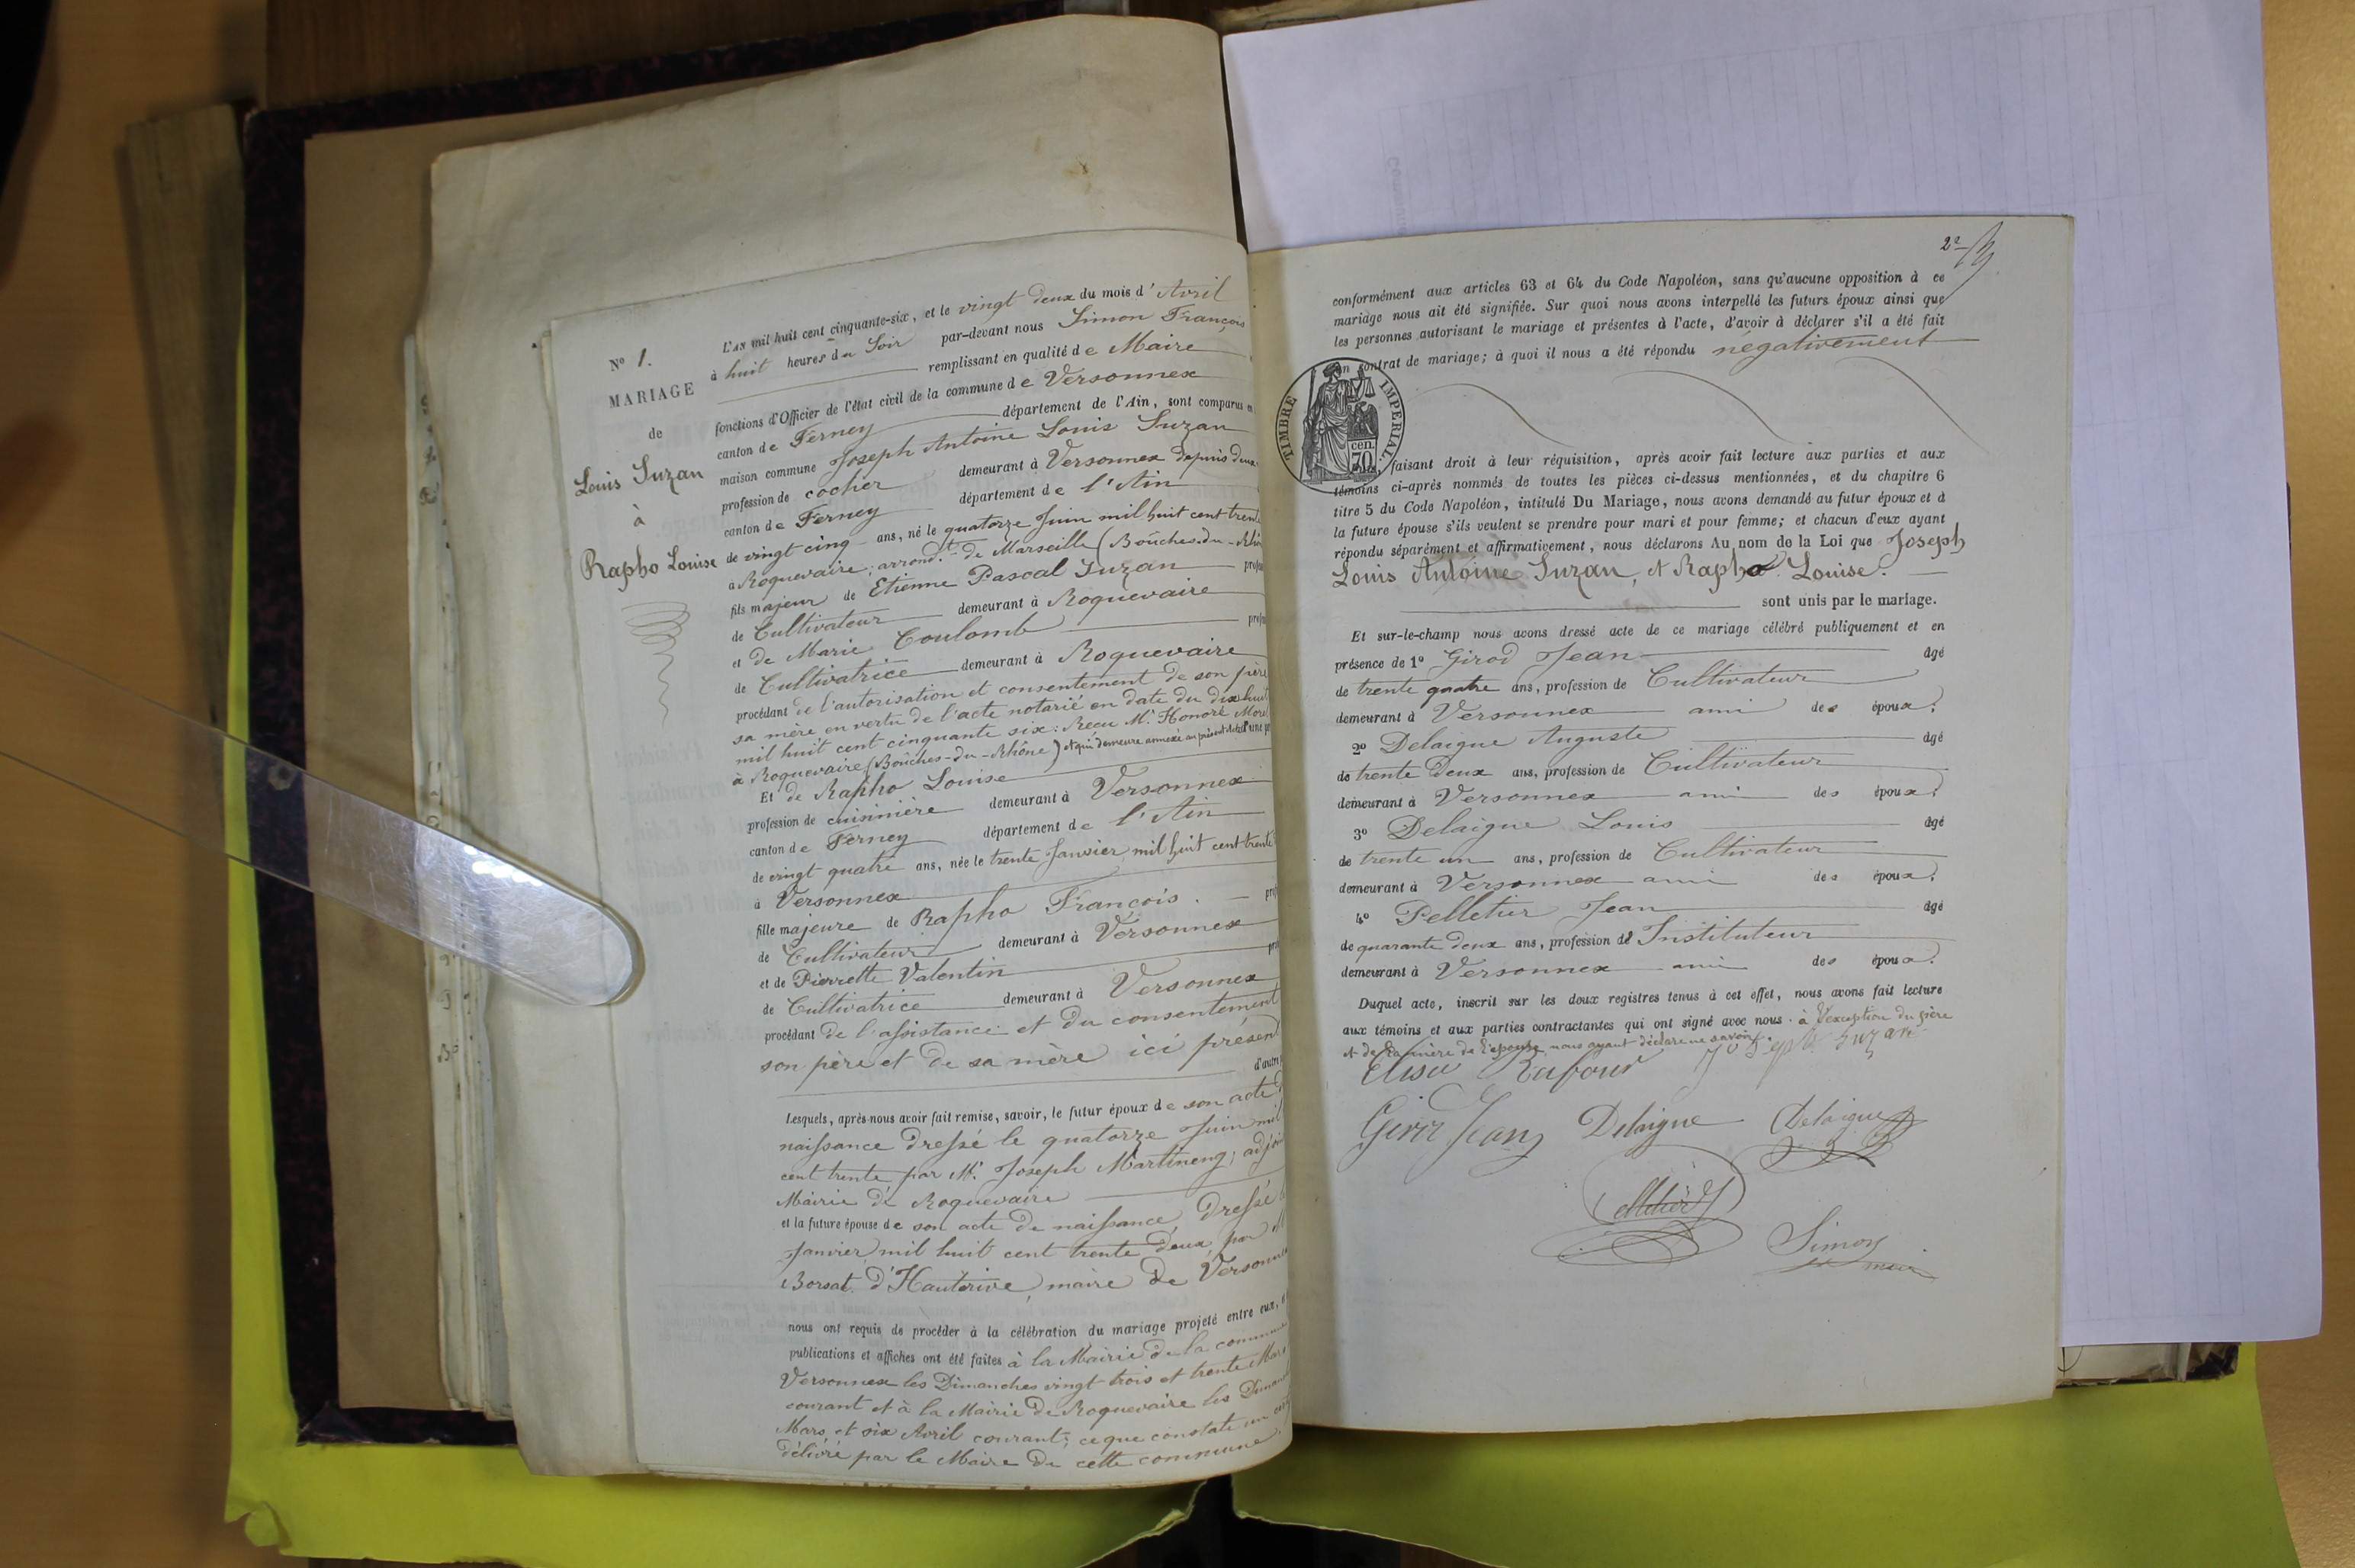 N° 1.
MARIAGE
de
Louis Suzan
à
Rapho Louise
L'AN mil huit cent cinquante-six, et le vingt deux du mois d'Avril
à huit heures du Soir par-devant nous Simon François
remplissant en qualité de Maire
fonctions d'Officier de l'état civil de la commune de Versonnex
canton de Ferney département de l'Ain, sont comparus en
maison commune Joseph Antoine Louis Suzan
profession de cocher demeurant à Versonnex depuis deux
canton de Ferney département de l'Ain
de vingt cinq ans, né le quatorze Juin mil huit cent trente
à Roquevaire, arrond.t de Marseille (Boûches-du-Rhô
fils majeur de Etienne Pascal Suzan
de Cultivateur demeurant à Roquevaire
et de Marie Coulomb
de Cultivatrice demeurant à Roquevaire
procédant de l'autorisation et consentement de son père
sa mère en vertu de l'acte notarié en date du dix huit
mil huit cent cinquante six: Recu M.r Honoré Morel
à Roquevaire (Boûches-du-Rhône) et qui demeure annexé au présent
Et de Rapho Louise
profession de cuisinière demeurant à Versonnex
canton de Ferney département de l'Ain
de vingt quatre ans, née le trente Janvier mil huit cent trente
à Versonnex
fille majeure de Rapho François.
de Cultivateur demeurant à Versonnex
et de Pierrette Valentin
de Cultivatrice demeurant à Versonnex
procédant de l'assistance et du consentement
son père et de sa mère ici présent
d'autre
Lesquels, après nous avoir fait remise, savoir, le futur époux de son acte d
naissance dressé le quatorze Juin mil
cent trente par M.r Joseph Martineng, adjoin
Mairie de Roquevaire
et la future épouse de son acte de naissance, dressé
Janvier mil huit cent trente deux par M
Borsat d'Hauterive, maire de Versonnex
nous ont requis de procéder à la célébration du mariage projeté entre eux,
publications et affiches ont été faites à la Mairie de la commune
Versonnex les Dimanches vingt trois et trente Mars
courant et à la Mairie de Roquevaire les Dimanc
Mars, et six Avril courant; ce que constate un
délivré par le Maire de cette commune
2e
conformément aux articles 63 et 64 du Code Napoléon, sans qu'aucune opposition à ce
mariage nous ait été signifiée. Sur quoi nous avons interpellé les futurs époux ainsi que
les personnes autorisant le mariage et présentes à l'acte, d'avoir à déclarer s'il a été fait
un contrat de mariage; à quoi il nous a été répondu negativement
TIMBRE IMPERIAL.
70 cen.
faisant droit à leur réquisition, après avoir fait lecture aux parties et aux
témoins ci-après nommés de toutes les pièces ci-dessus mentionnées, et du chapitre 6
titre 5 du Code Napoléon, intitulé Du Mariage, nous avons demandé au futur époux et à
la future épouse s'ils veulent se prendre pour mari et pour femme; et chacun d'eux ayant
répondu séparément et affirmativement, nous déclarons Au nom de la Loi que Joseph
Louis Antoine Suzan, et Rapho Louise.
sont unis par le mariage.
Et sur-le-champ nous avons dressé acte de ce mariage célébré publiquement et en
présence de 1° Girod Jean âgé
de trente quatre ans, profession de Cultivateur
demeurant à Versonnex ami des époux.
2° Delaigue Auguste âgé
de trente deux ans, profession de Cultivateur
demeurant à Versonnex ami des époux.
3° Delaigue Louis âgé
de trente un ans, profession de Cultivateur
demeurant à Versonnex ami des époux.
4° Pelletier Jean âgé
de quarante deux ans, profession de Instituteur
demeurant à Versonnex ami des époux.
Duquel acte, inscrit sur les deux registres tenus à cet effet, nous avons fait lecture
aux témoins et aux parties contractantes qui ont signé avec nous à l'exception du père
et de la mère de l'épouse, nous ayant déclaré ne savoir.
Joseph Suzan
Girod Jean Delaigue Delaigue
Simon
maire